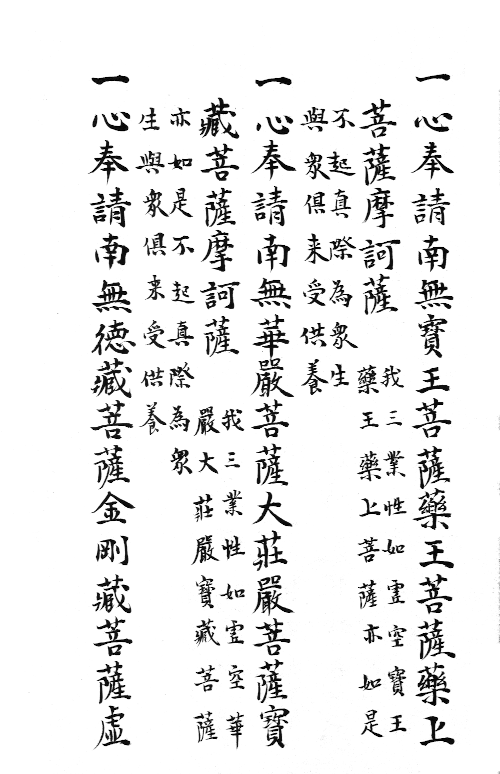 一心奉請南無寶王菩薩藥王菩薩藥上
菩薩摩訶薩
我三業性如虛空寶王
藥王藥上菩薩亦如是
不起真際為眾生
與眾俱来受供養
一心奉請南無華嚴菩薩大莊嚴菩薩寶
藏菩薩摩訶薩
我三業性如虛空華
嚴大莊嚴寶藏菩薩
亦如是不起真際為眾
生與眾俱来受供養
一心奉請南無德藏菩薩金剛藏菩薩虛